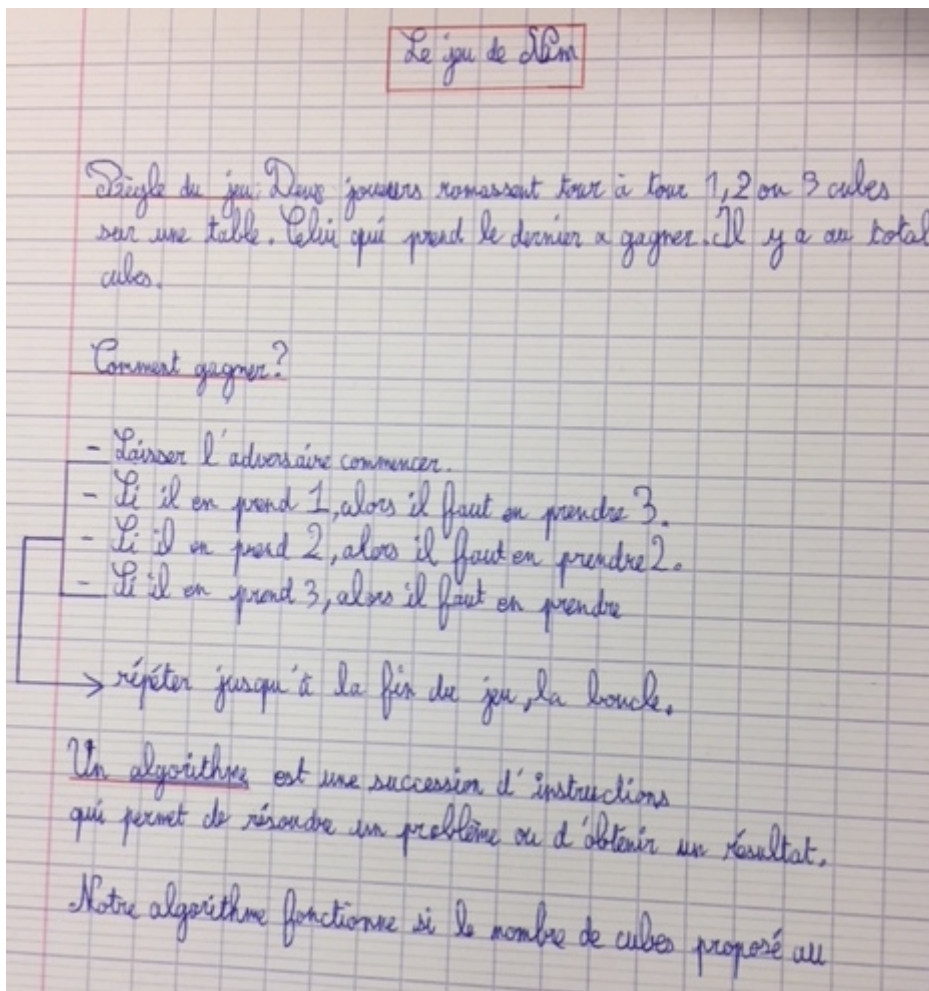 Le jeu de Nim
Règle du jeu: Deux joueurs ramassent tour à tour 1, 2 ou 3 cubes
sur une table. Celui qui prend le dernier a gagner. Il y a au total
cubes.
Comment gagner?
- Laisser l'adversaire commencer.
- Si il en prend 1, alors il faut en prendre 3.
- Si il en prend 2, alors il faut en prendre 2.
- Si il en prend 3, alors il faut en prendre
→ répéter jusqu'à la fin du jeu, la boucle.
Un algorithme est une succession d'instructions
qui permet de résoudre un problème ou d'obtenir un résultat.
Notre algorithme fonctionne si le nombre de cubes proposé au